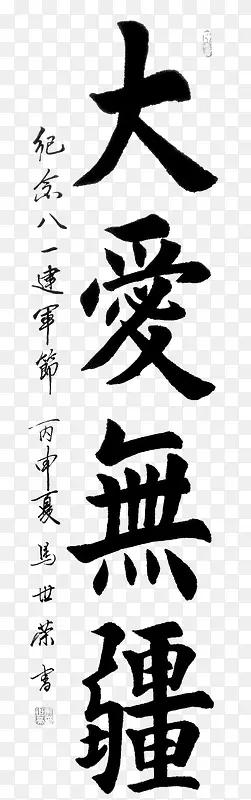 大愛無疆
紀念八一建軍節 丙申夏 馬世榮書